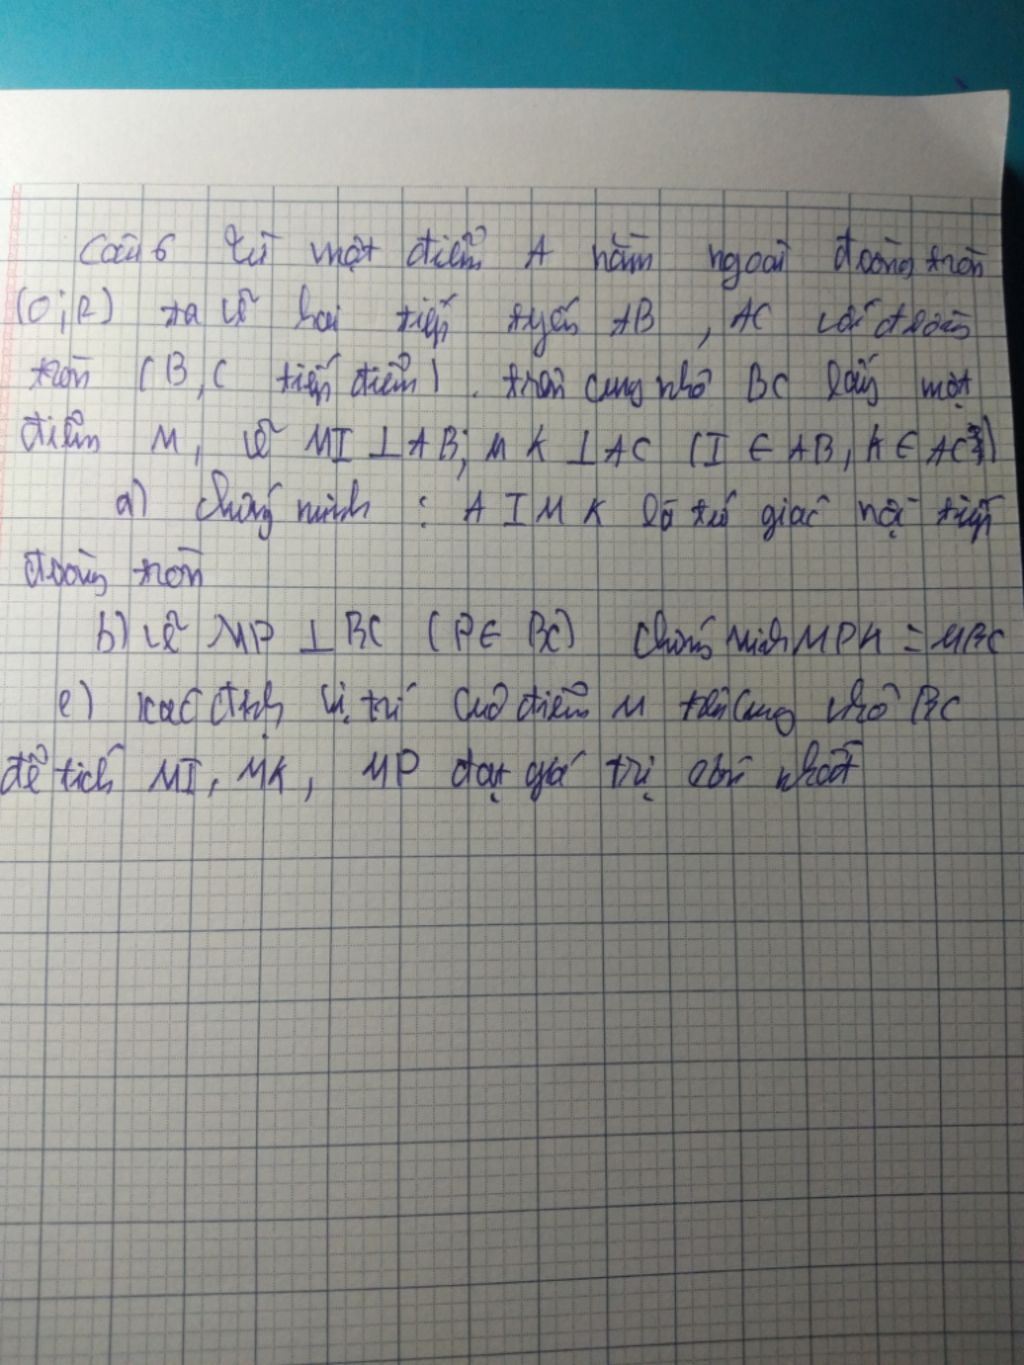 Câu 6 Từ một điểm A nằm ngoài đường tròn
(O;R) ta vẽ hai tiếp tuyến AB, AC với đường
tròn (B,C tiếp điểm). trên cung nhỏ BC lấy một
điểm M, vẽ MI ⊥ AB; MK ⊥ AC (I ∈ AB, K ∈ AC)
a) chứng minh : AIMK là tứ giác nội tiếp
đường tròn
b) vẽ MP ⊥ BC (P ∈ BC) chứng minh MPK = MBC
c) xác định vị trí của điểm M trên cung nhỏ BC
để tích MI, MK, MP đạt giá trị lớn nhất